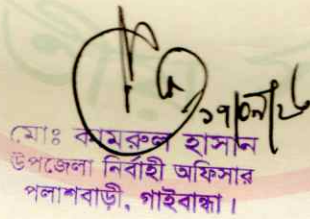 মোঃ কামরুল হাসান
উপজেলা নির্বাহী অফিসার
পলাশবাড়ী, গাইবান্ধা।